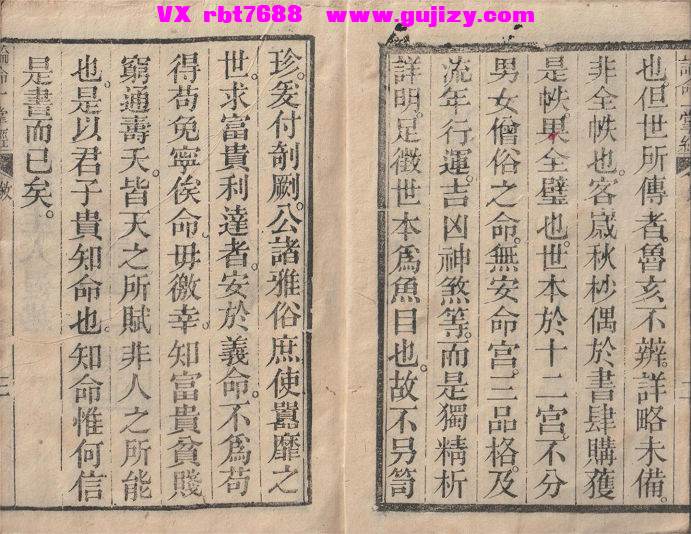 VX rbt7688 www.gujizy.com
也。但世所傳者。魯亥不辨。詳略未備。
非全帙也。客歲秋杪。偶於書肆購獲
是帙。果全璧也。世本於十二宮。不分
男女僧俗之命。無安命宮。三品格。及
流年行運。吉凶神煞等。而是獨精析
詳明。足徵世本爲魚目也。故不另笥
珍。爰付剞劂。公諸雅俗。庶使囂靡之
世。求富貴利達者。安於義命。不爲苟
得苟免。寧俟命。毋徼幸。知富貴貧賤
窮通壽夭。皆天之所賦。非人之所能
也。是以君子貴知命也。知命惟何。信
是書而已矣。